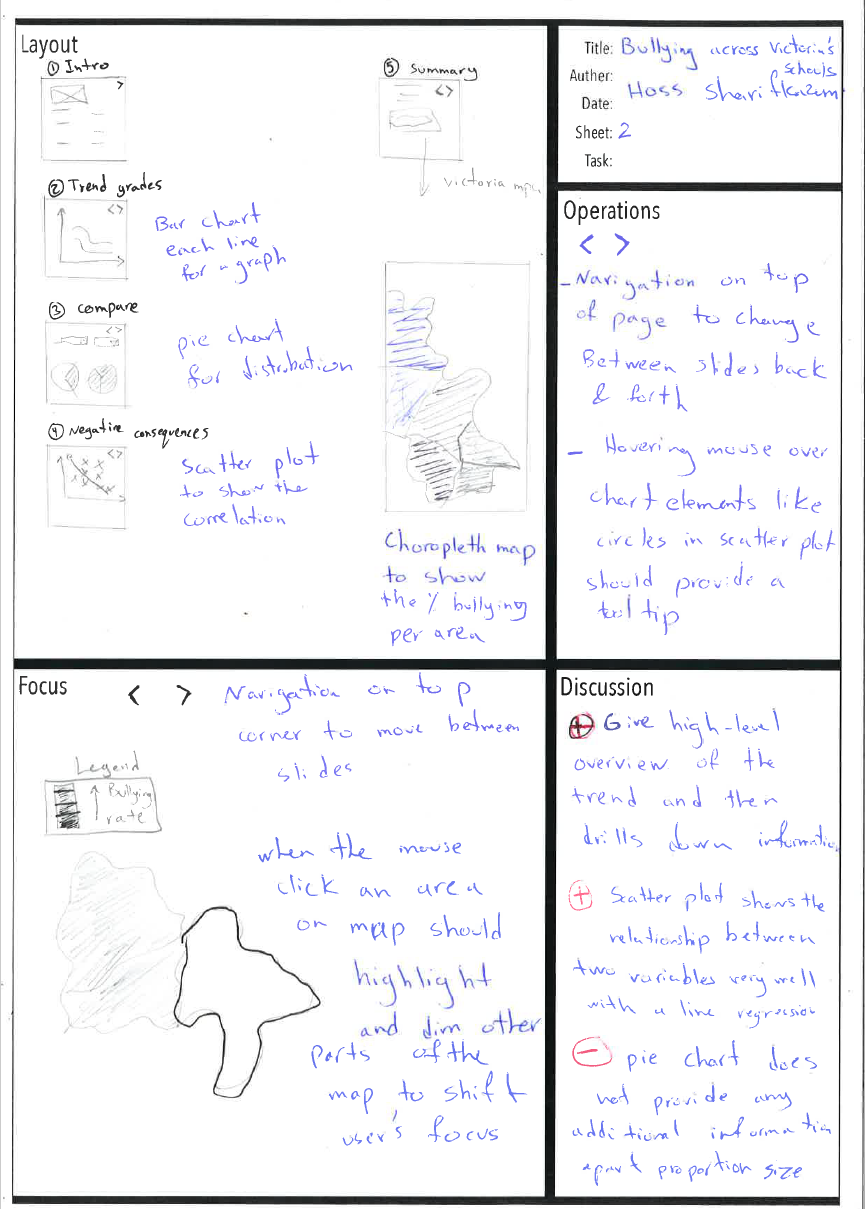 Layout
① Intro
② Trend grades
Bar chart
each line
for a graph
③ compare
pie chart
for distrobution
④ Negative consequences
Scatter plot
to show the
correlation
⑤ Summary
victoria map
Choropleth map
to show
the % bullying
per area
Title: Bullying across Victoria's
schools
Auther: Hoss Sharifkazem
Date:
Sheet: 2
Task:
Operations
< >
- Navigation on top
of page to change
Between slides back
& forth
- Hovering mouse over
chart elements like
circles in scatter plot
should provide a
tool tip
Focus
< > Navigation on top
corner to move between
slides
Legend
Bullying
rate
when the mouse
click an area
on map should
highlight
and dim other
parts of the
map to shift
user's focus
Discussion
+ Give high-level
overview of the
trend and then
drills down information
+ Scatter plot shows the
relationship between
two variables very well
with a line regression
- pie chart does
not provide any
additional information
apart proportion size